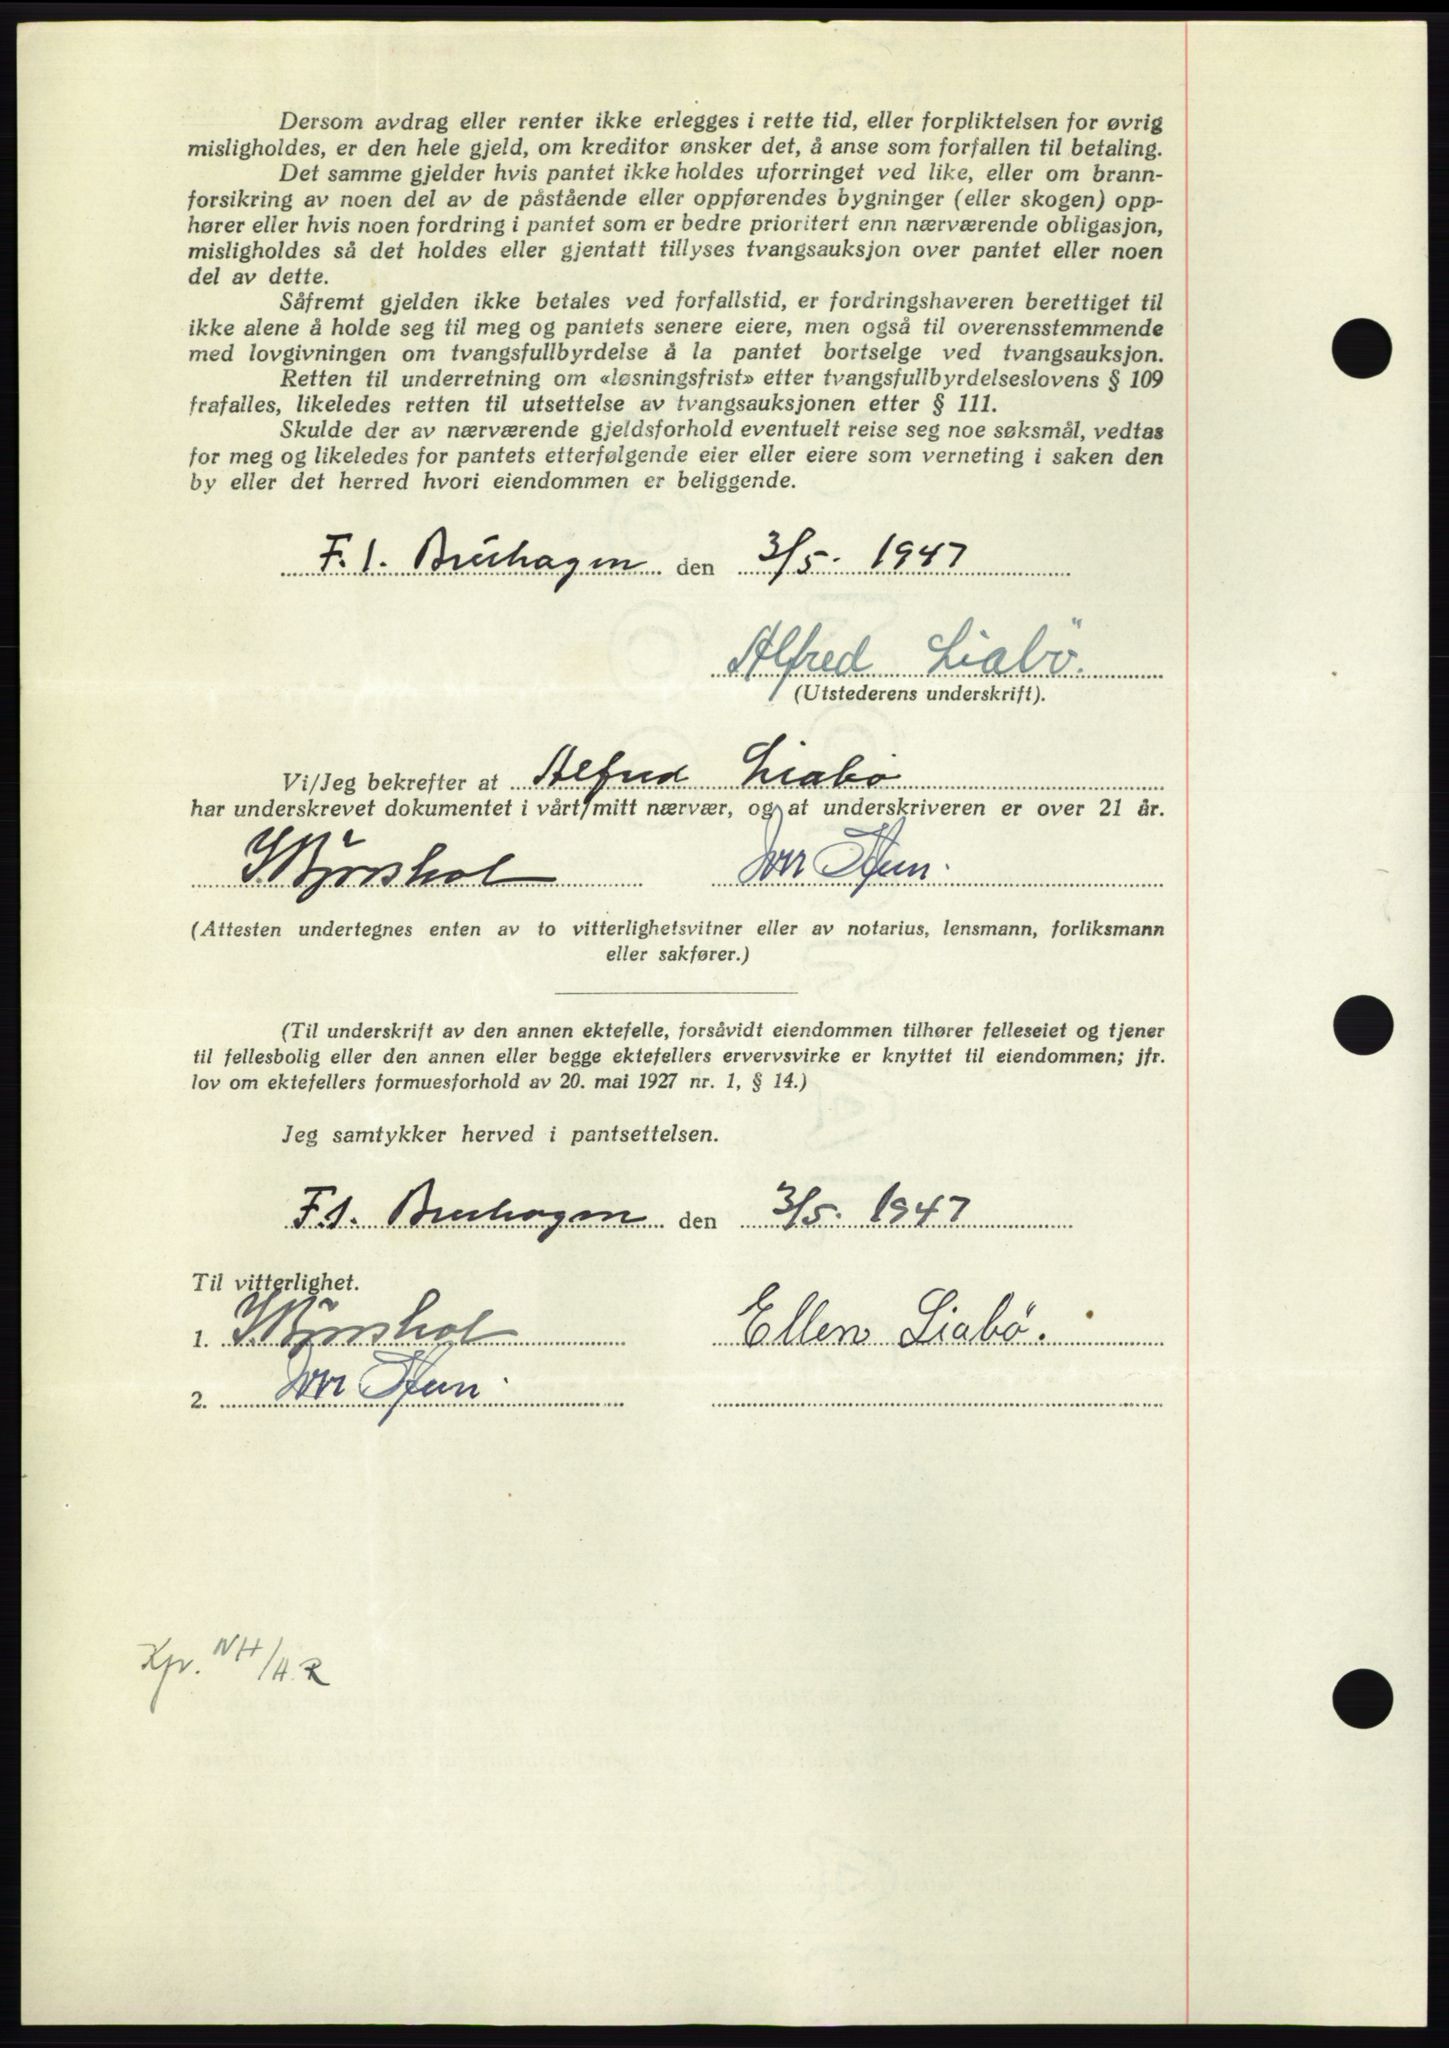 Dersom avdrag eller renter ikke erlegges i rette tid, eller forpliktelsen for øvrig
misligholdes, er den hele gjeld, om kreditor ønsker det, å anse som forfallen til betaling.
Det samme gjelder hvis pantet ikke holdes uforringet ved like, eller om brann-
forsikring av noen del av de påstående eller oppførendes bygninger (eller skogen) opp-
hører eller hvis noen fordring i pantet som er bedre prioritert enn nærværende obligasjon,
misligholdes så det holdes eller gjentatt tillyses tvangsauksjon over pantet eller noen
del av dette.
Såfremt gjelden ikke betales ved forfallstid, er fordringshaveren berettiget til
ikke alene å holde seg til meg og pantets senere eiere, men også til overensstemmende
med lovgivningen om tvangsfullbyrdelse å la pantet bortselge ved tvangsauksjon.
Retten til underretning om «løsningsfrist» etter tvangsfullbyrdelseslovens § 109
frafalles, likeledes retten til utsettelse av tvangsauksjonen etter § 111.
Skulde der av nærværende gjeldsforhold eventuelt reise seg noe søksmål, vedtas
for meg og likeledes for pantets etterfølgende eier eller eiere som verneting i saken den
by eller det herred hvori eiendommen er beliggende.
F. 1. Bruhagen den 3/5. 1947
Alfred Liabö.
(Utstederens underskrift).
Vi/Jeg bekrefter at Alfred Liabø
har underskrevet dokumentet i vårt/mitt nærvær, og at underskriveren er over 21 år.
(Attesten undertegnes enten av to vitterlighetsvitner eller av notarius, lensmann, forliksmann
eller sakfører.)
(Til underskrift av den annen ektefelle, forsåvidt eiendommen tilhører felleseiet og tjener
til fellesbolig eller den annen eller begge ektefellers ervervsvirke er knyttet til eiendommen; jfr.
lov om ektefellers formuesforhold av 20. mai 1927 nr. 1, § 14.)
Jeg samtykker herved i pantsettelsen.
F. 1. Bruhagen den 3/5. 1947
Til vitterlighet.
1. Ellen Liabø.
2.